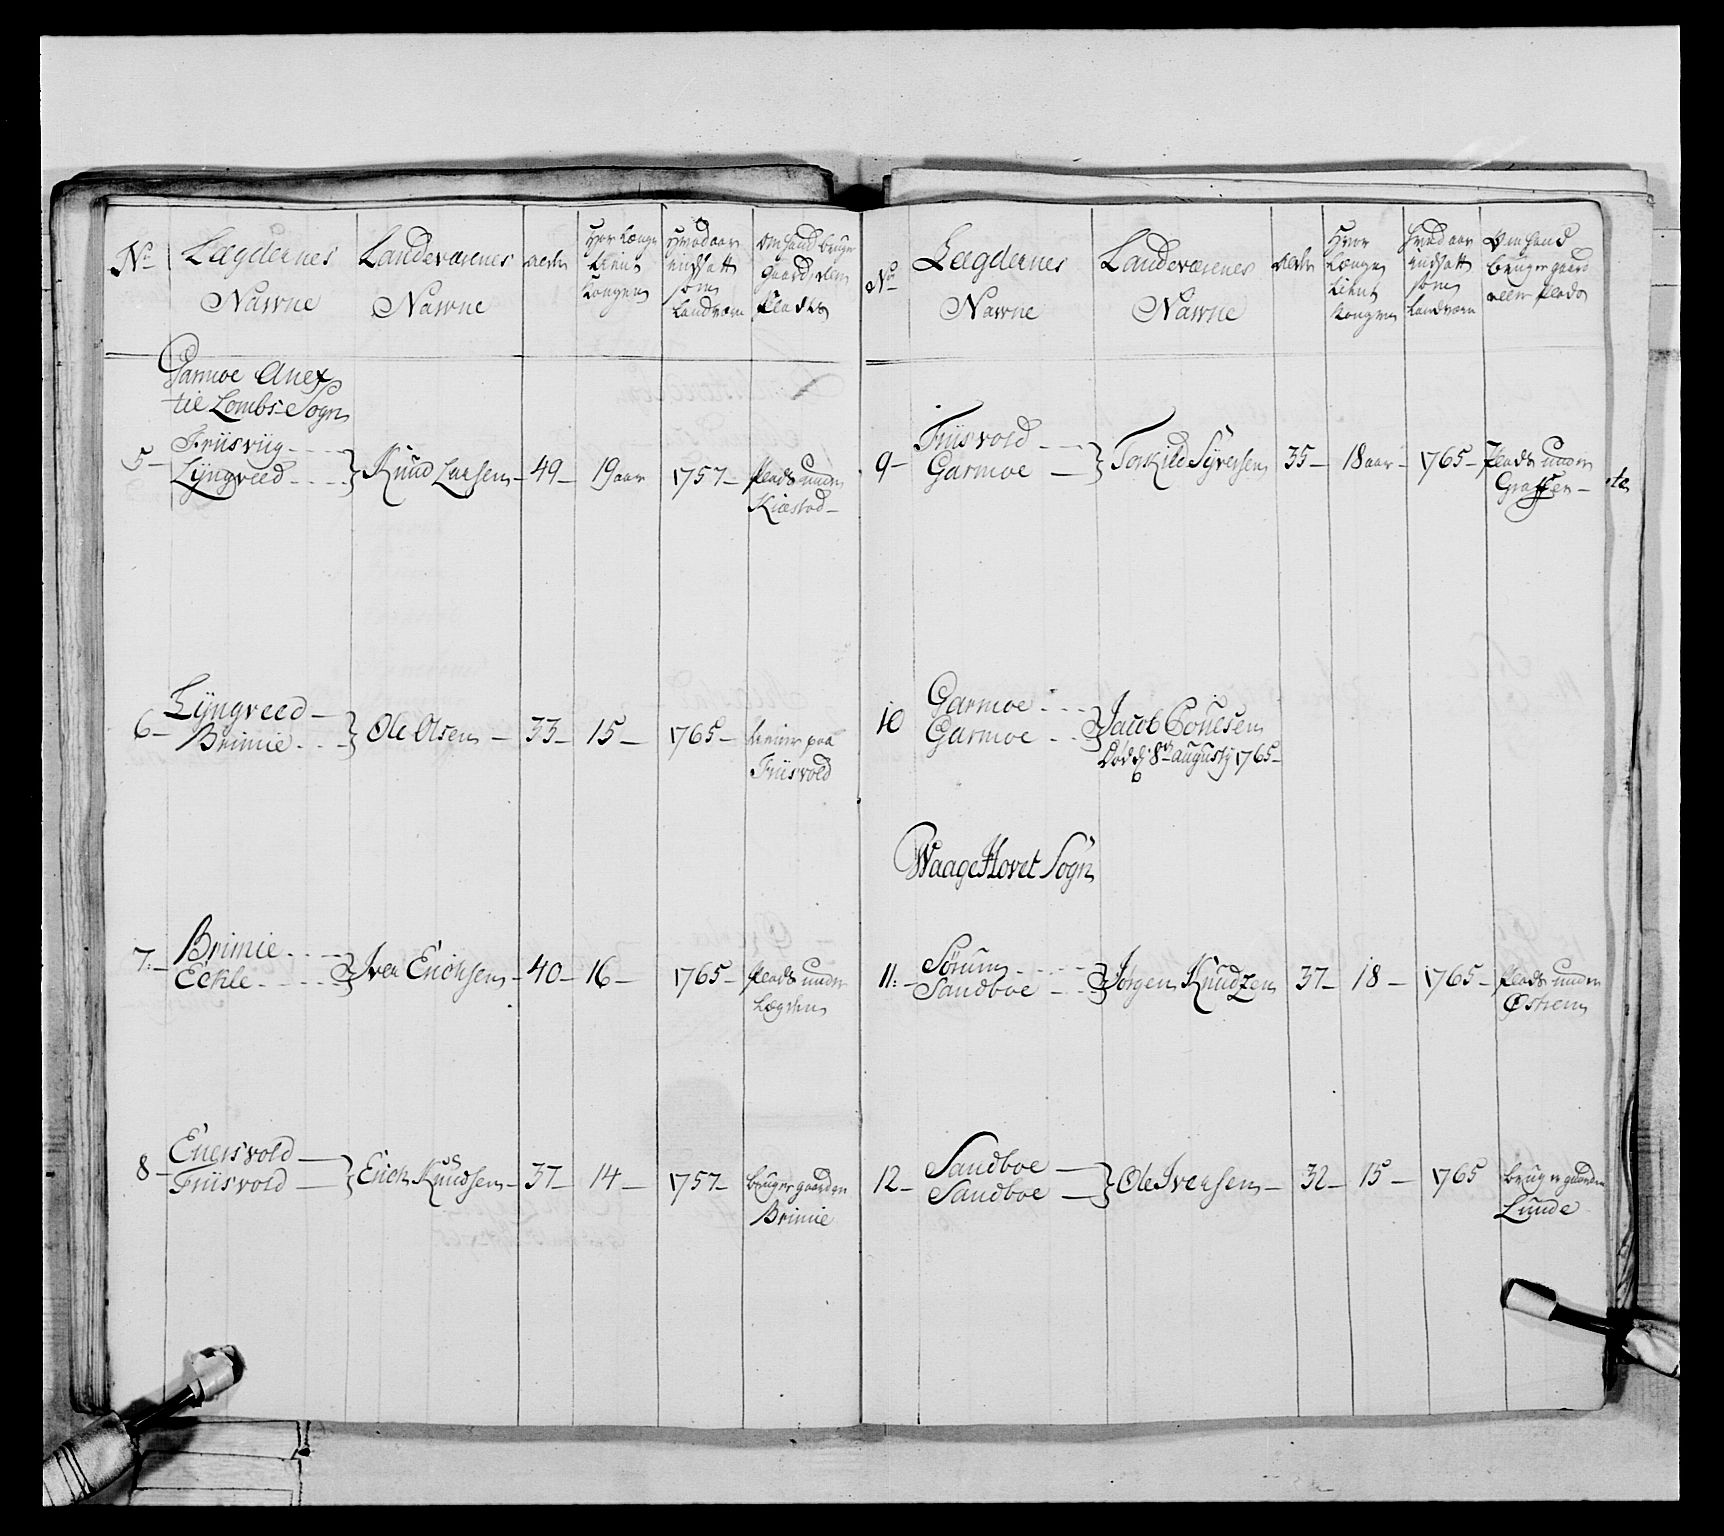 No Lægdernes Nawne Landeværenes Nawne Alder Hvor Længe tient Kongen Hvad aar indsatt som Landværn Om hand bruger gaard eller Plads
Garmoe Anex
til Lombs Sogn
5 – Friisviig – Lÿngveed – Knud Larsen – 49 – 19 aar 1757 – Plads under Kiæstad –
6 – Lÿngveed – Brimie – Ole Olsen – 33 – 15 – 1765 – paa Friisvold
7: – Brimie – Eckle – Iver Erichsen – 40 – 16 – 1765 – Plads under Lægden
8 – Enersvold – Friisvold – Erich Knudsen – 37 – 14 – 1757 – bruger gaarden Brimie
No Lægdernes Nawne Landeværenes Nawne Alder Hvor Længe tient Kongen Hvad aar indsatt som Landværn Om hand bruger gaard eller Plads
9 – Friisvold – Garmoe – Torkild Syversen 35 – 18 aar – 1765 – Plads under Graffer –
10 Garmoe – Garmoe – Jacob Poulsen
Død d: 8de augusty 1765 –
Waage Hovet Sogn
11: – Sørum – Sandboe – Jørgen Knudzen 37 – 18 – 1765 – Plads under Østrem
12 – Sandboe – Sandboe – Ole Iversen – 32 – 15 – 1765 bruger gaarden Lunde